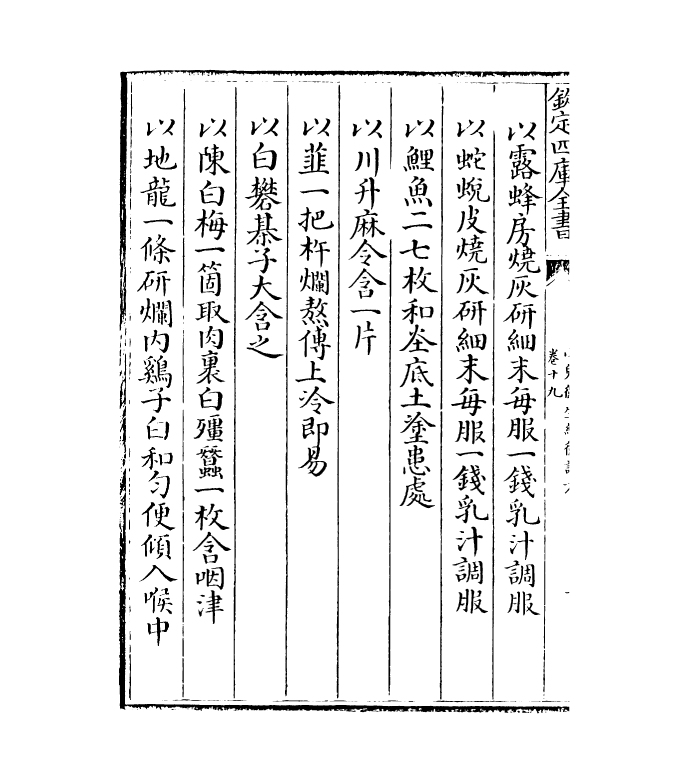 欽定四庫全書
卷十九
以露蜂房燒灰研細末每服一錢乳汁調服
以蛇蛻皮燒灰研細末每服一錢乳汁調服
以鯉魚二七枚和坴底土塗患處
以川升麻令含一片
以韮一把杵爛熬傅上冷即易
以白礬棊子大含之
以陳白梅一箇取肉裹白殭蠶一枚含咽津
以地龍一條研爛内鷄子白和勻便傾入喉中